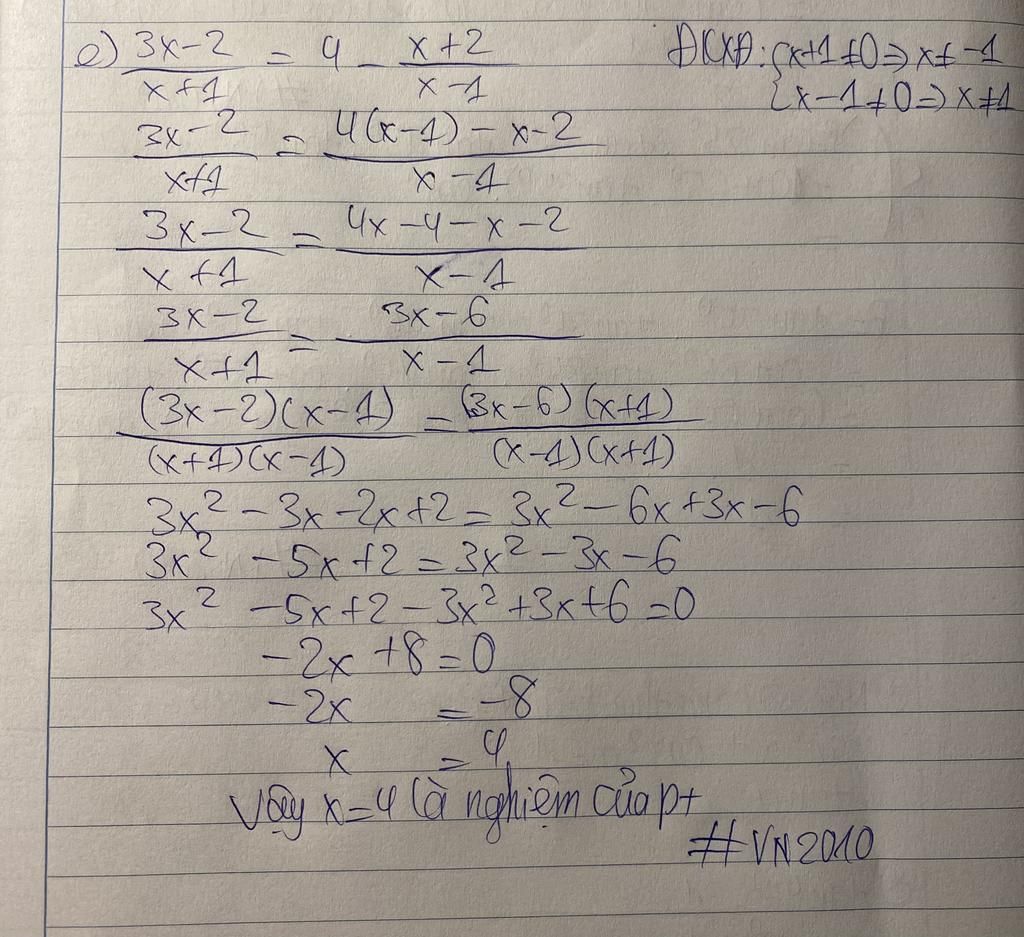 e) (3x-2)/(x+1) = 4 - (x+2)/(x-1) ĐKXĐ: {x+1≠0=>x≠-1
{x-1≠0=>x≠1
(3x-2)/(x+1) = (4(x-1)-x-2)/(x-1)
(3x-2)/(x+1) = (4x-4-x-2)/(x-1)
(3x-2)/(x+1) = (3x-6)/(x-1)
((3x-2)(x-1))/((x+1)(x-1)) = ((3x-6)(x+1))/((x-1)(x+1))
3x²-3x-2x+2=3x²-6x+3x-6
3x²-5x+2=3x²-3x-6
3x²-5x+2-3x²+3x+6=0
-2x+8=0
-2x =-8
x =4
Vậy x=4 là nghiệm của pt
#VN2010